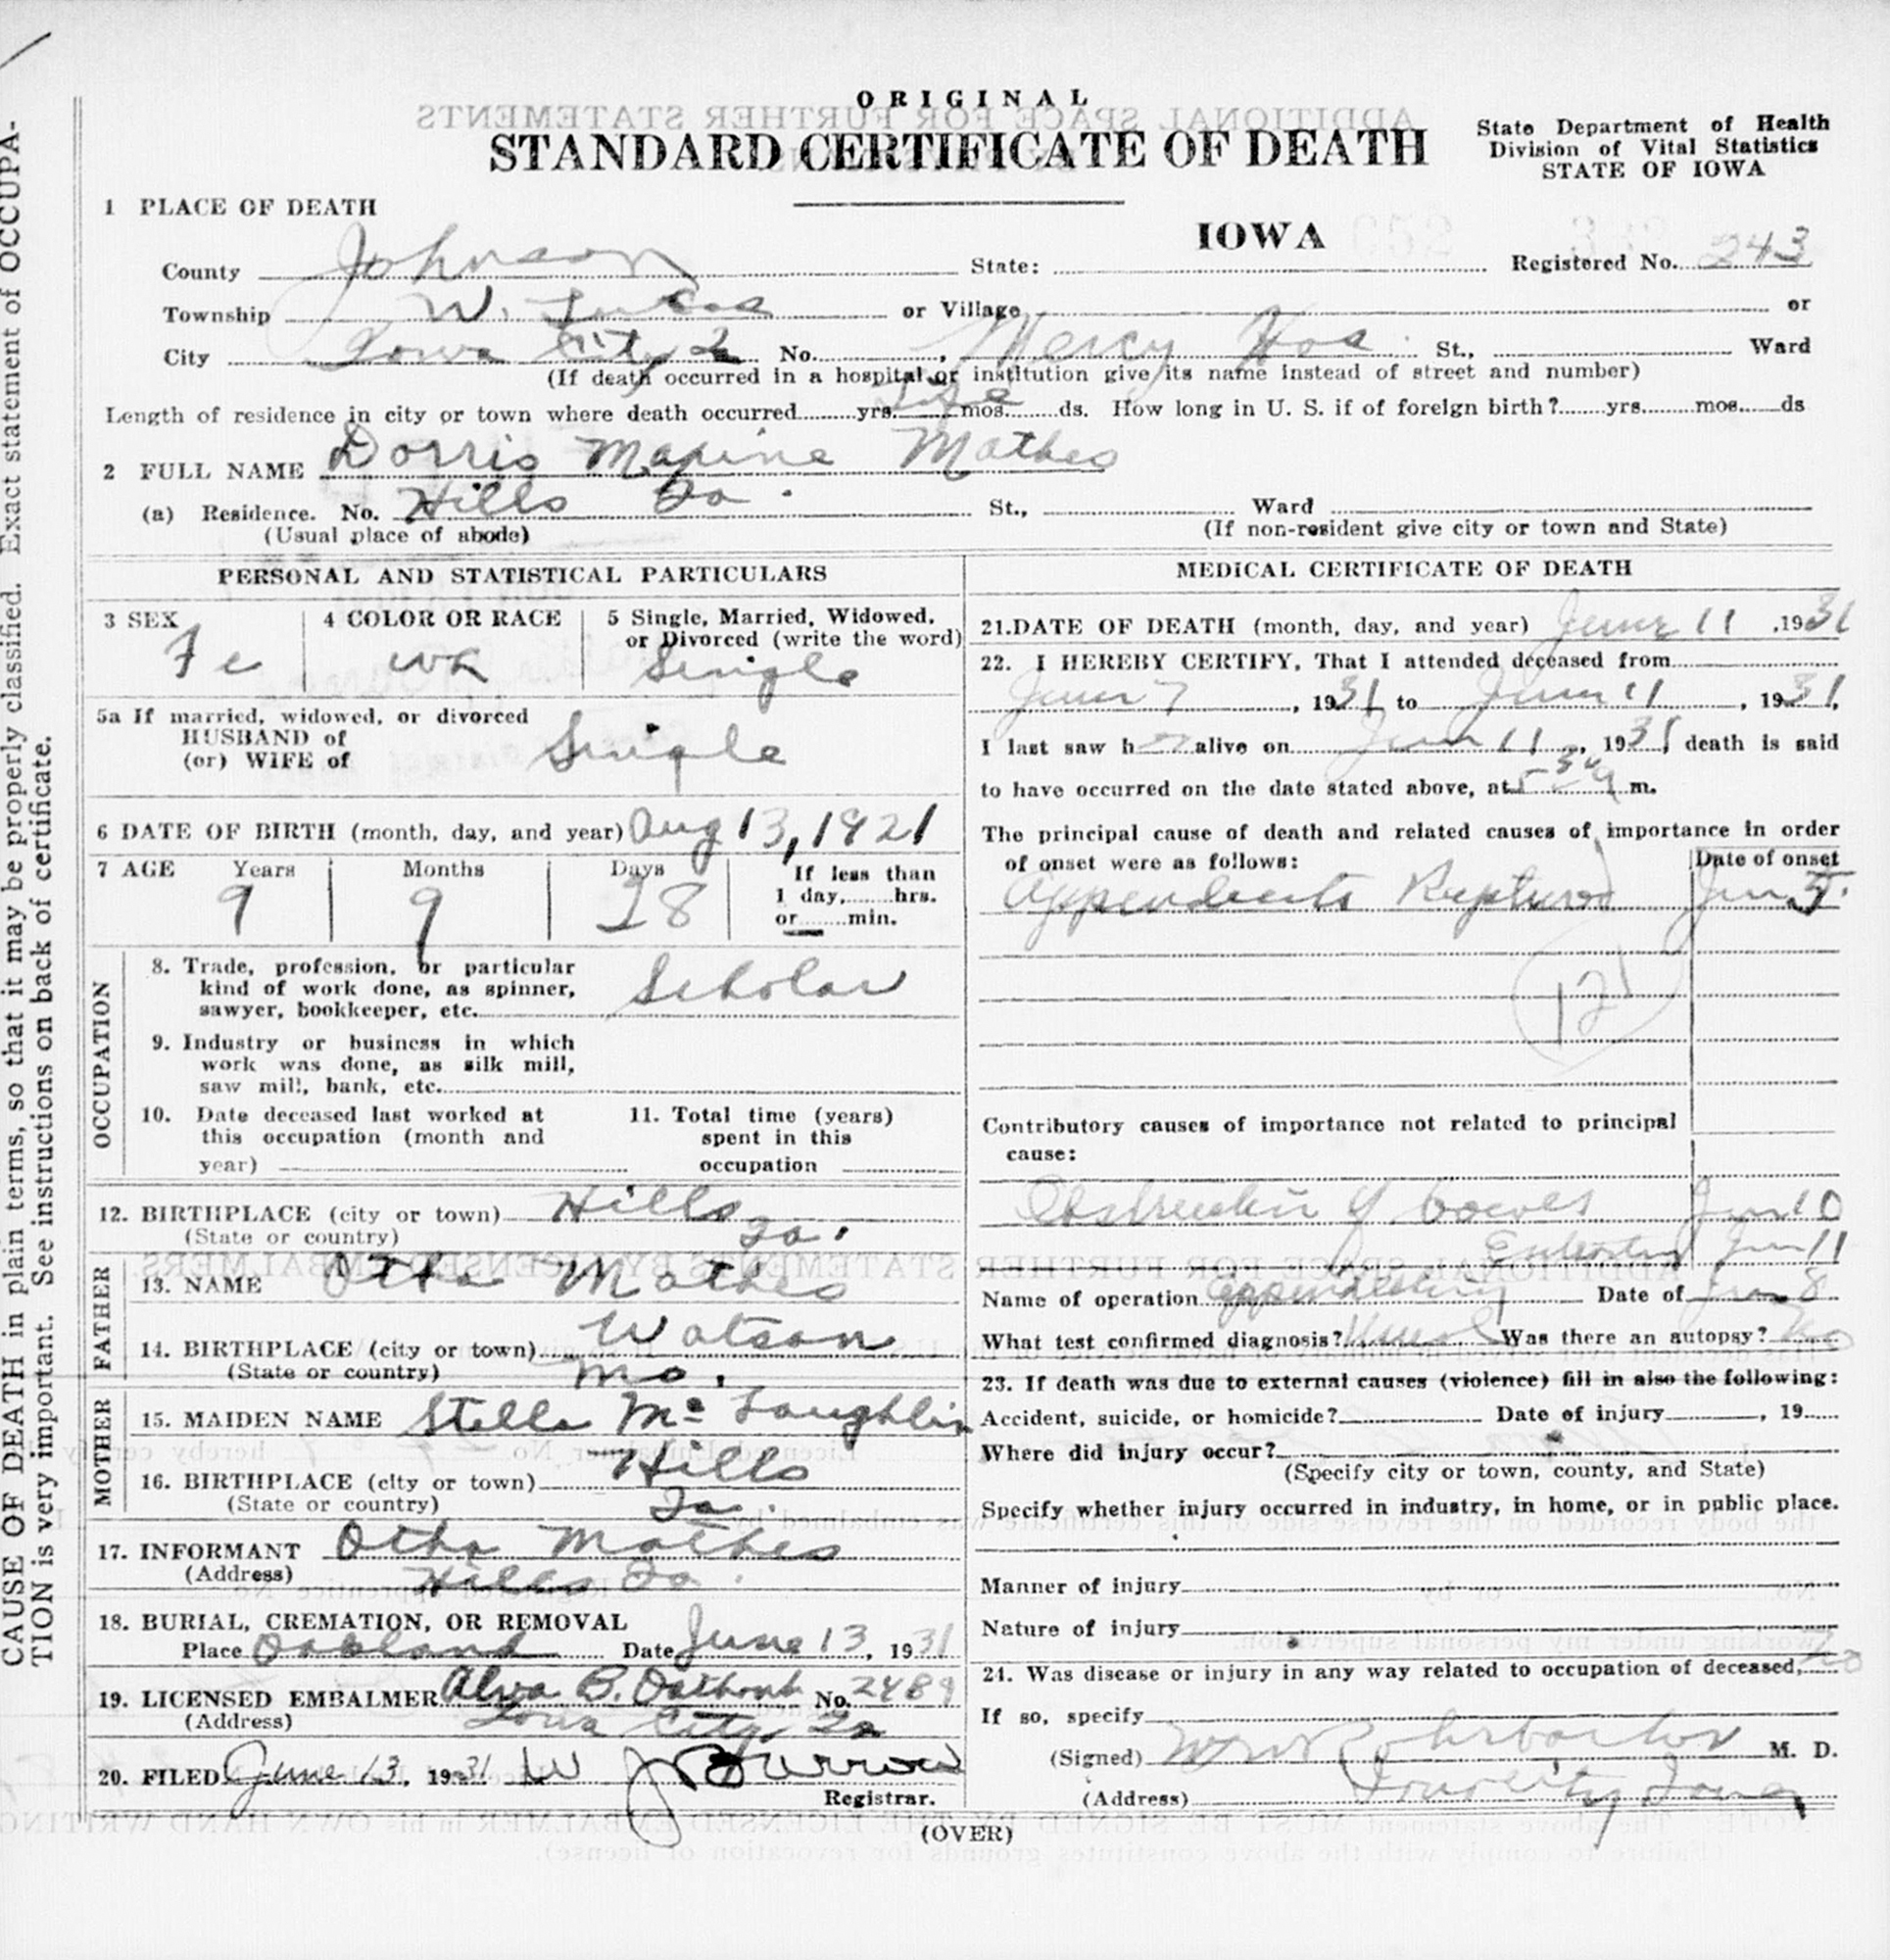 ORIGINAL
STANDARD CERTIFICATE OF DEATH
State Department of Health
Division of Vital Statistics
STATE OF IOWA
1 PLACE OF DEATH
IOWA
County Johnson State: Registered No. 243
Township W. Lucas or Village or
City Iowa City No. , Mercy Hos. St., Ward
(If death occurred in a hospital or institution give its name instead of street and number)
Length of residence in city or town where death occurred yrs. Life mos. ds. How long in U. S. if of foreign birth? yrs. mos. ds
2 FULL NAME Dorris Maxine Mathes
(a) Residence. No. Hills Ia. St., Ward
(Usual place of abode) (If non-resident give city or town and State)
PERSONAL AND STATISTICAL PARTICULARS
3 SEX Fe
4 COLOR OR RACE wh
5 Single, Married, Widowed,
or Divorced (write the word)
Single
5a If married, widowed, or divorced
HUSBAND of
(or) WIFE of Single
6 DATE OF BIRTH (month, day, and year) Aug 13, 1921
7 AGE Years Months Days If less than
1 day, hrs.
or min.
9 9 28
OCCUPATION
8. Trade, profession, or particular
kind of work done, as spinner,
sawyer, bookkeeper, etc. Scholar
9. Industry or business in which
work was done, as silk mill,
saw mill, bank, etc.
10. Date deceased last worked at
this occupation (month and
year)
11. Total time (years)
spent in this
occupation
12. BIRTHPLACE (city or town) Hills
(State or country) Ia.
FATHER
13. NAME Otha Mathes
14. BIRTHPLACE (city or town) Watson
(State or country) Mo.
MOTHER
15. MAIDEN NAME Stella Mc Laughlin
16. BIRTHPLACE (city or town) Hills
(State or country) Ia.
17. INFORMANT Otha Mathes
(Address) Hills Ia.
18. BURIAL, CREMATION, OR REMOVAL
Place Oakland Date June 13, 1931
19. LICENSED EMBALMER Alva B. Oathout No. 2489
(Address) Iowa City, Ia
20. FILED June 13, 1931 W J Burrow
Registrar.
MEDICAL CERTIFICATE OF DEATH
21. DATE OF DEATH (month, day, and year) June 11, 1931
22. I HEREBY CERTIFY, That I attended deceased from
June 7, 1931 to June 11, 1931,
I last saw her alive on June 11, 1931 death is said
to have occurred on the date stated above, at 5 30 a m.
The principal cause of death and related causes of importance in order
of onset were as follows: Date of onset
Appendicitis Ruptured Jun 5.
121
Contributory causes of importance not related to principal
cause:
Obstruction of bowels Jun 10
Jun 11
Name of operation Date of Jun 8
What test confirmed diagnosis? Visual Was there an autopsy? No
23. If death was due to external causes (violence) fill in also the following:
Accident, suicide, or homicide? Date of injury , 19
Where did injury occur?
(Specify city or town, county, and State)
Specify whether injury occurred in industry, in home, or in public place.
Manner of injury
Nature of injury
24. Was disease or injury in any way related to occupation of deceased, No
If so, specify
(Signed) W M Rohrbacher M. D.
(Address) Iowa City Iowa
(OVER)
CAUSE OF DEATH in plain terms, so that it may be properly classified. Exact statement of OCCUPA-
TION is very important. See instructions on back of certificate.